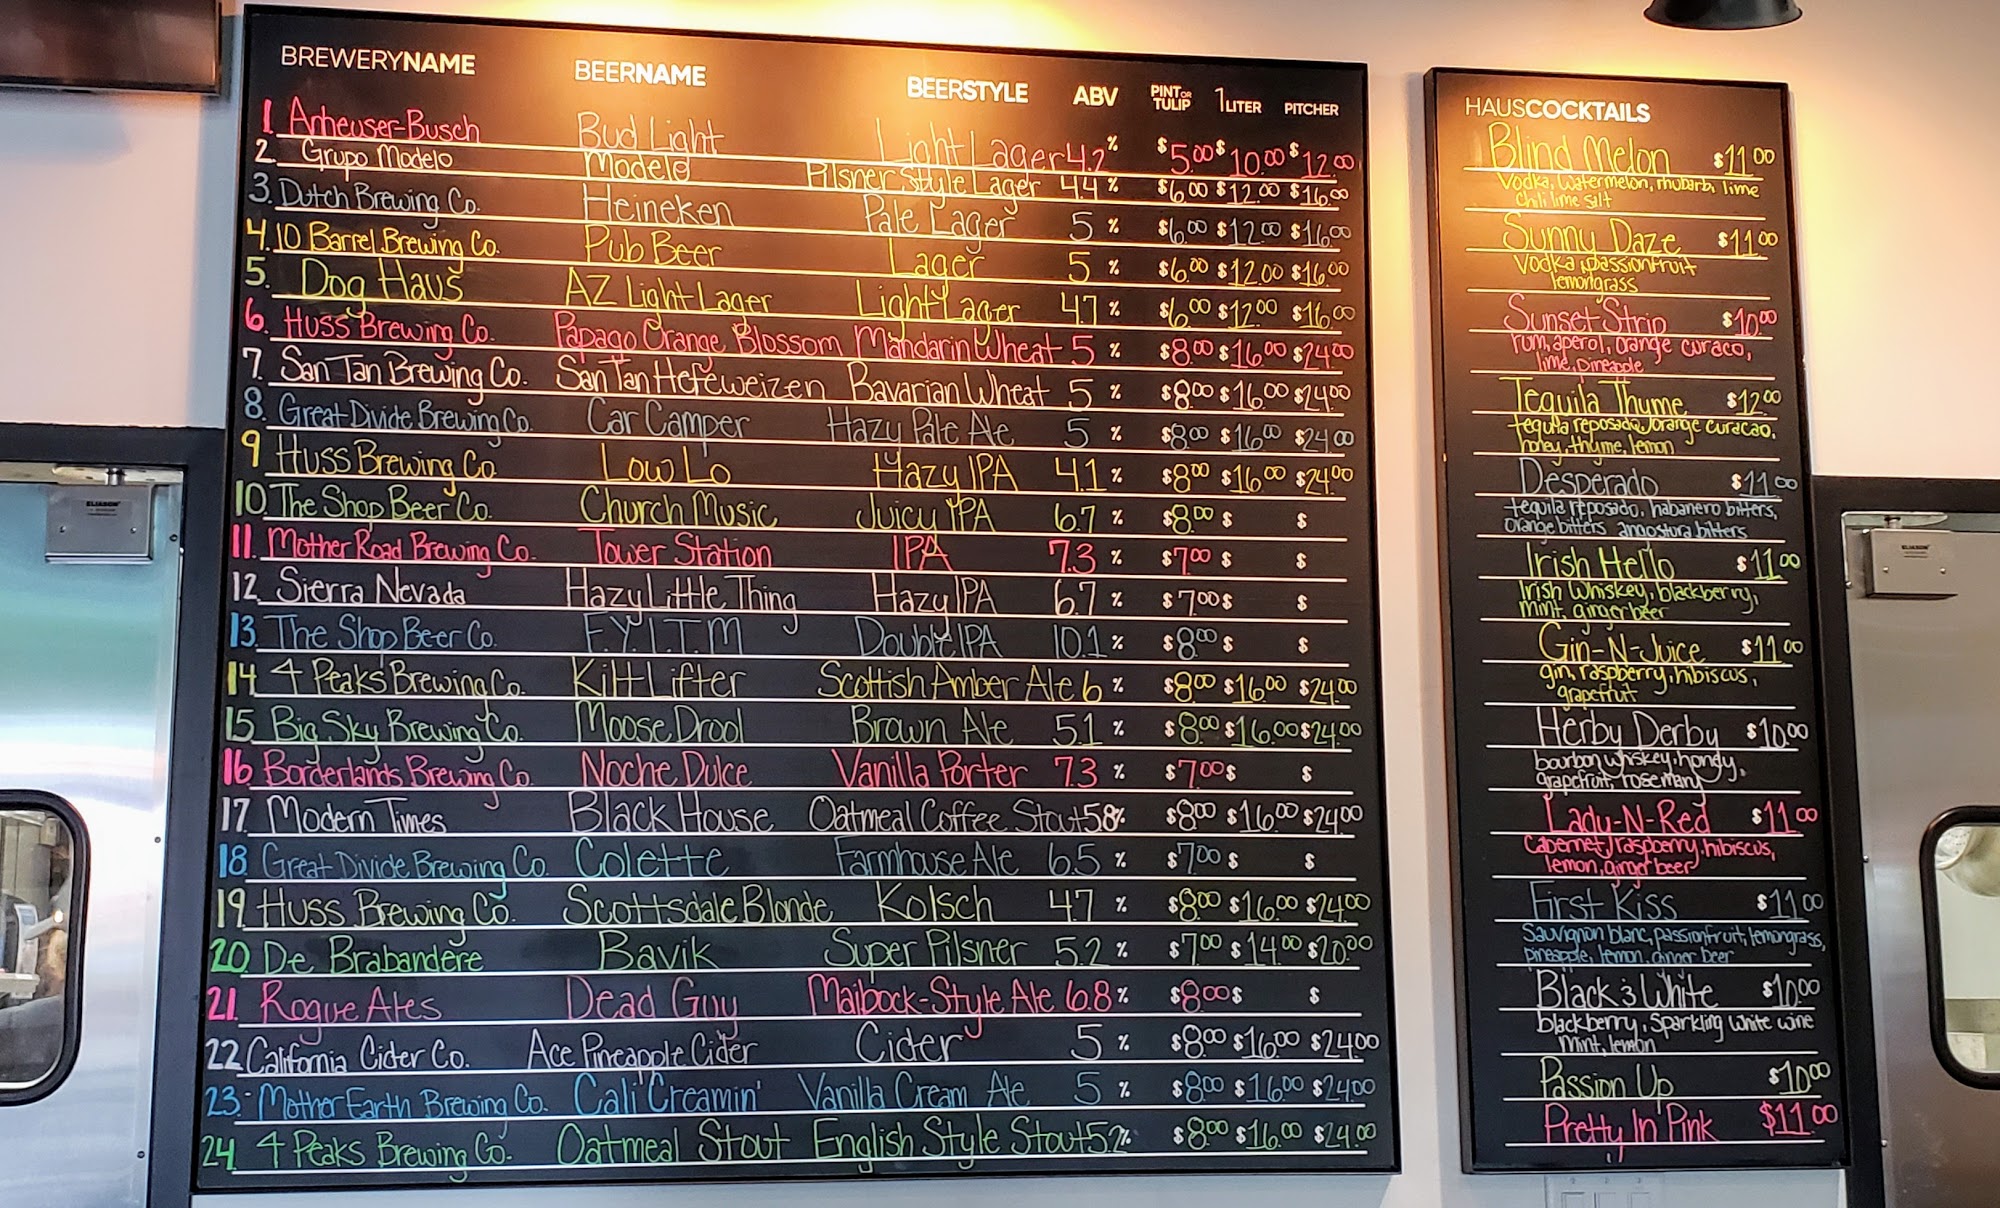 BREWERYNAME BEERNAME BEERSTYLE ABV PINT OR TULIP 1 LITER PITCHER
1. Anheuser-Busch Bud Light Light Lager 4.2 % $5.00 $10.00 $12.00
2. Grupo Modelo Modelo Pilsner Style Lager 4.4 % $6.00 $12.00 $16.00
3. Dutch Brewing Co. Heineken Pale Lager 5 % $6.00 $12.00 $16.00
4. 10 Barrel Brewing Co. Pub Beer Lager 5 % $6.00 $12.00 $16.00
5. Dog Haus AZ Light Lager Light Lager 4.7 % $6.00 $12.00 $16.00
6. Huss Brewing Co. Papago Orange Blossom Mandarin Wheat 5 % $8.00 $16.00 $24.00
7. San Tan Brewing Co. San Tan Hefeweizen Bavarian Wheat 5 % $8.00 $16.00 $24.00
8. Great Divide Brewing Co. Car Camper Hazy Pale Ale 5 % $8.00 $16.00 $24.00
9 Huss Brewing Co Low Lo Hazy IPA 4.1 % $8.00 $16.00 $24.00
10. The Shop Beer Co. Church Music Juicy IPA 6.7 % $8.00 $ $
11. Mother Road Brewing Co. Tower Station IPA 7.3 % $7.00 $ $
12 Sierra Nevada Hazy Little Thing Hazy IPA 6.7 % $7.00 $ $
13. The Shop Beer Co. F.Y.I.T.M Double IPA 10.1 % $8.00 $ $
14 4 Peaks Brewing Co. Kilt Lifter Scottish Amber Ale 6 % $8.00 $16.00 $24.00
15 Big Sky Brewing Co. Moose Drool Brown Ale 5.1 % $8.00 $16.00 $24.00
16 Borderlands Brewing Co. Noche Dulce Vanilla Porter 7.3 % $7.00 $ $
17 Modern Times Black House Oatmeal Coffee Stout 5.8% $8.00 $16.00 $24.00
18 Great Divide Brewing Co. Colette Farmhouse Ale 6.5 % $7.00 $ $
19 Huss Brewing Co. Scottsdale Blonde Kolsch 4.7 % $8.00 $16.00 $24.00
20 De Brabandere Bavik Super Pilsner 5.2 % $7.00 $14.00 $20.00
21. Rogue Ales Dead Guy Maibock-Style Ale 6.8 % $8.00 $ $
22 California Cider Co. Ace Pineapple Cider Cider 5 % $8.00 $16.00 $24.00
23. Mother Earth Brewing Co. Cali Creamin' Vanilla Cream Ale 5 % $8.00 $16.00 $24.00
24. 4 Peaks Brewing Co. Oatmeal Stout English Style Stout 5.2% $8.00 $16.00 $24.00
HAUSCOCKTAILS
Blind Melon $11.00
Vodka, watermelon, rhubarb, lime
chili lime salt
Sunny Daze $11.00
Vodka, passionfruit
lemongrass
Sunset Strip $10.00
rum, aperol, orange curaco,
lime, pineapple
Tequila Thyme $12.00
tequila reposado, orange curacao,
honey, thyme, lemon
Desperado $11.00
tequila reposado, habanero bitters,
orange bitters angostura bitters
Irish Hello $11.00
Irish whiskey, blackberry,
mint, ginger beer
Gin-N-Juice $11.00
gin, raspberry, hibiscus,
grapefruit
Herby Derby $10.00
bourbon whiskey, honey,
grapefruit, rosemary
Lady-N-Red $11.00
Cabernet, raspberry, hibiscus,
lemon, ginger beer
First Kiss $11.00
Sauvignon blanc, passionfruit, lemongrass,
pineapple, lemon, ginger beer
Black & White $10.00
blackberry, sparkling white wine
mint, lemon
Passion Up $10.00
Pretty In Pink $11.00
ELIASON
ELIASON